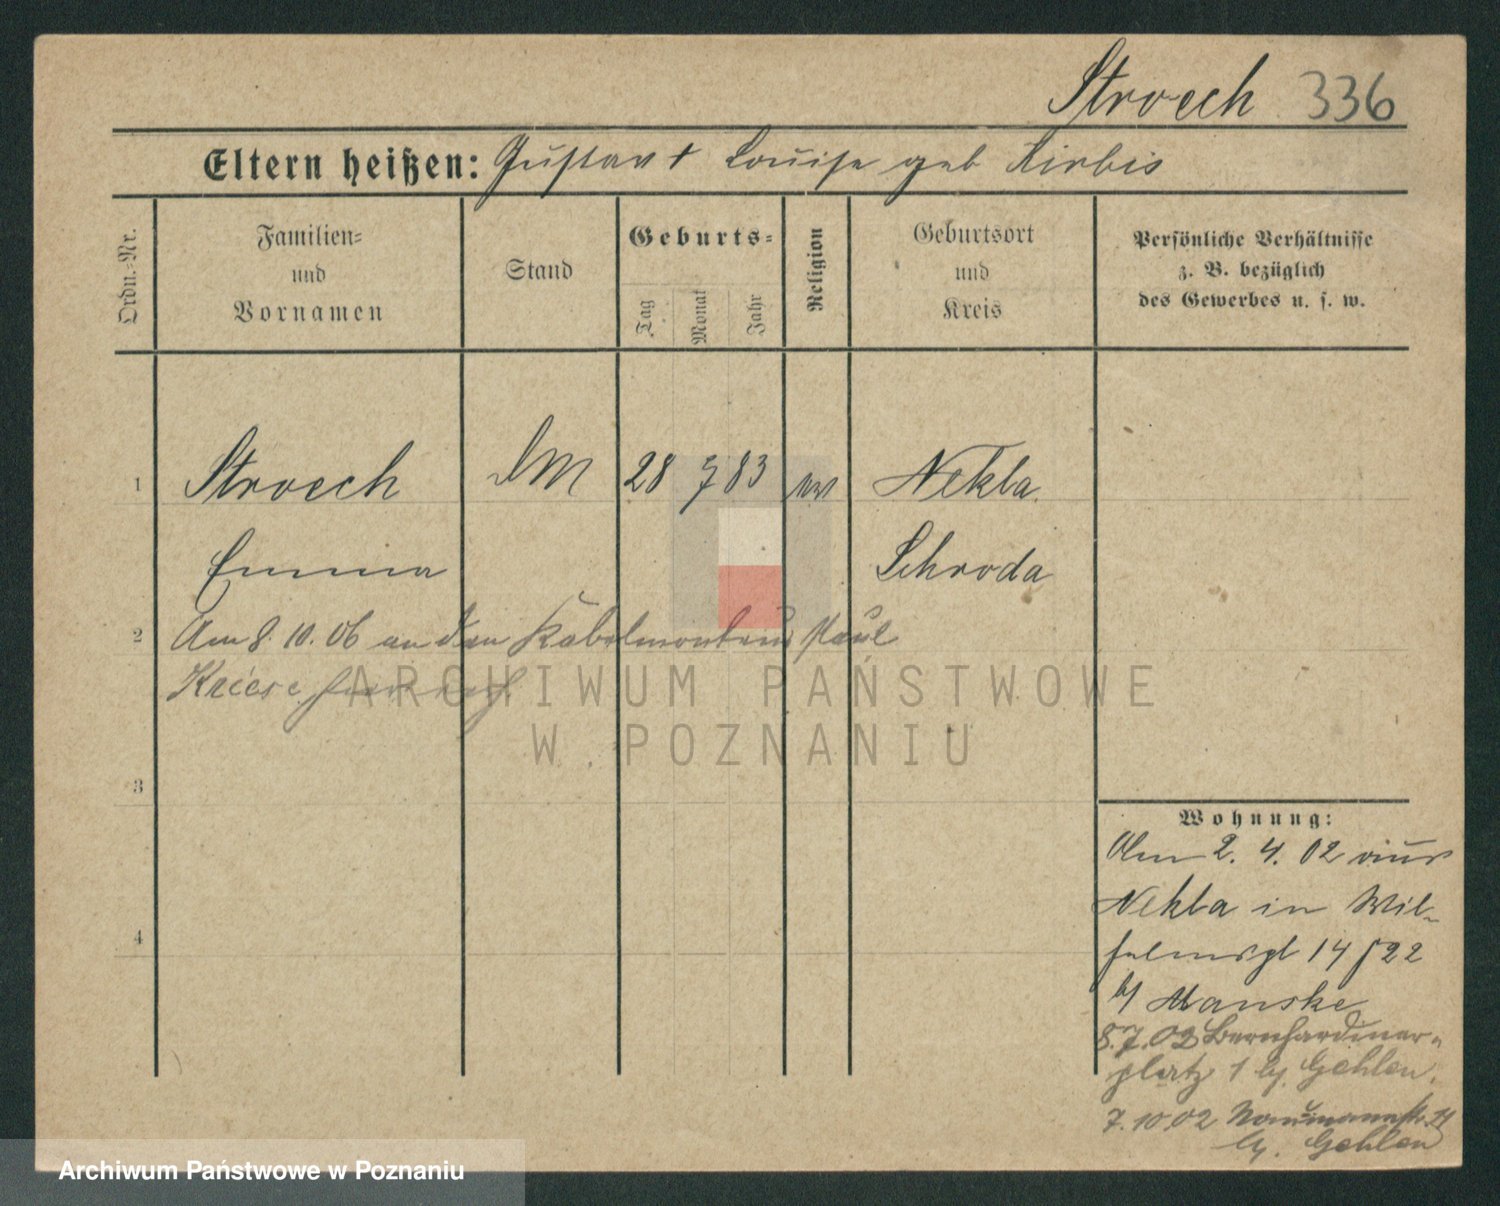 Stroech 336
Eltern heißen: Gustav † Louise geb Kirbis
Ordn.-Nr.
Familien-
und
Vornamen
Stand
Geburts-
Tag
Monat
Jahr
Religion
Geburtsort
und
Kreis
Persönliche Verhältnisse
z. B. bezüglich
des Gewerbes u. s. w.
1 Stroech DM 28 7 83 ev Nekla
Emma Schroda
2 Am 8. 10. 06 an den Kabelmonteur Paul
Kriese
3
4
Wohnung:
Am 2. 4. 02 aus
Nekla in Wil-
helmspl 14 22
bj Manske
8.7.02 Bernhardiner-
platz 1 bj. Gehlen.
7.10.02 Naumannstr. 11
bj. Gehlen
ARCHIWUM PAŃSTWOWE
W POZNANIU
Archiwum Państwowe w Poznaniu